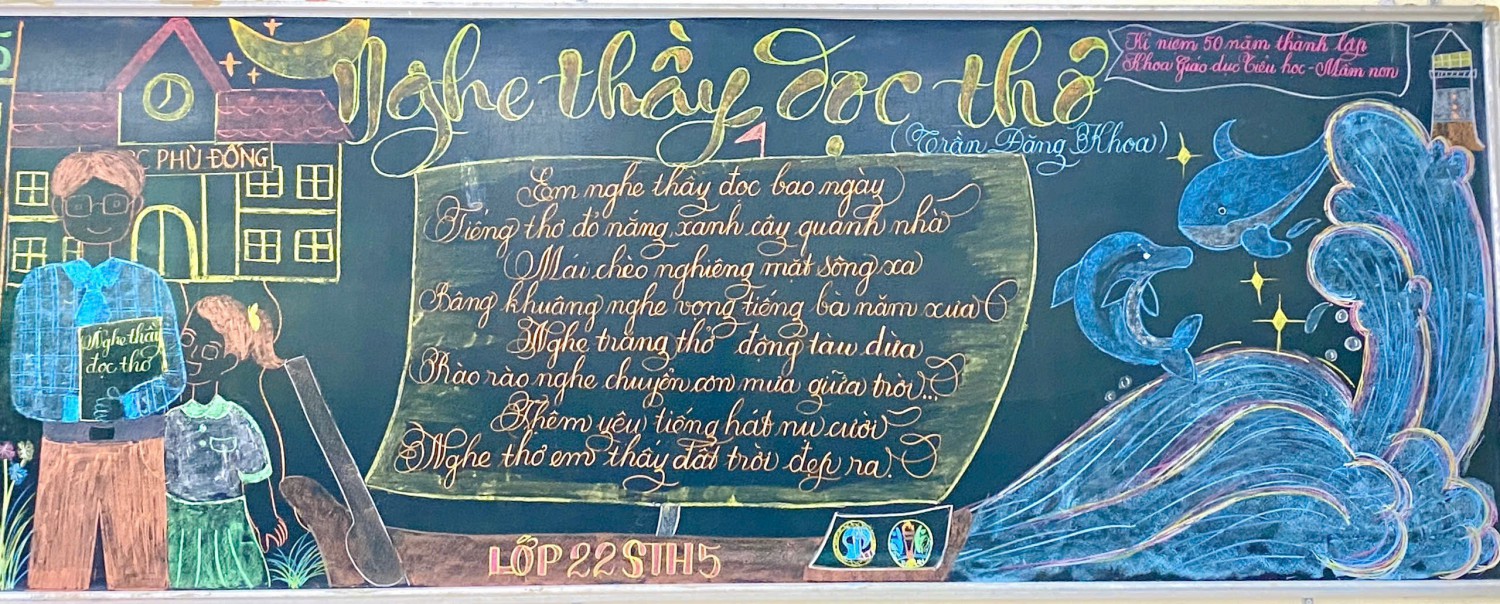 5
Nghe thầy đọc thơ
(Trần Đăng Khoa)
Kỉ niệm 50 năm thành lập
Khoa Giáo dục Tiểu học - Mầm non
C PHÙ ĐỔNG
Nghe thầy
đọc thơ
Em nghe thầy đọc bao ngày
Tiếng thơ đỏ nắng, xanh cây quanh nhà
Mái chèo nghiêng mặt sông xa
Bâng khuâng nghe vọng tiếng bà năm xưa
Nghe trăng thở động tàu dừa
Rào rào nghe chuyển cơn mưa giữa trời...
Thêm yêu tiếng hát nụ cười
Nghe thơ em thấy đất trời đẹp ra.
LỚP 22STH5